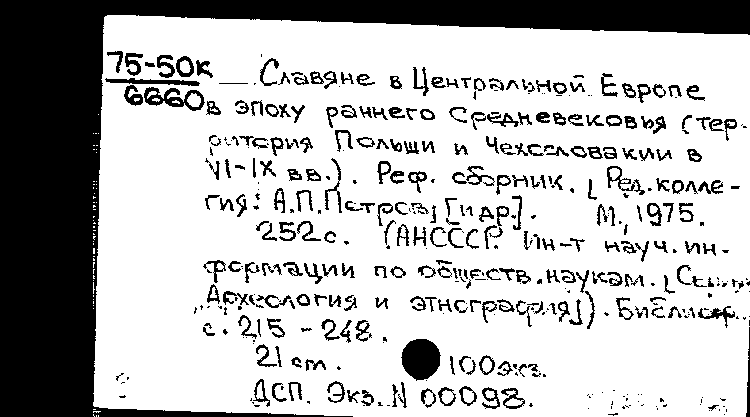 75-50к
6660
Славяне в Центральной Европе
в эпоху раннего Средневековья (тер-
ритория Польши и Чехословакии в
VI-IX вв.). Реф. сборник. [Ред. колле-
гия: А.П.Петров] [и др.]. М., 1975.
252 с. (АНСССР. Ин-т науч. ин-
формации по обществ. наукам. [Серия
"Археология и этнография]). Библиогр.
с. 215 - 248.
21 cm. 100экз.
ДСП. Экз. N 00098.